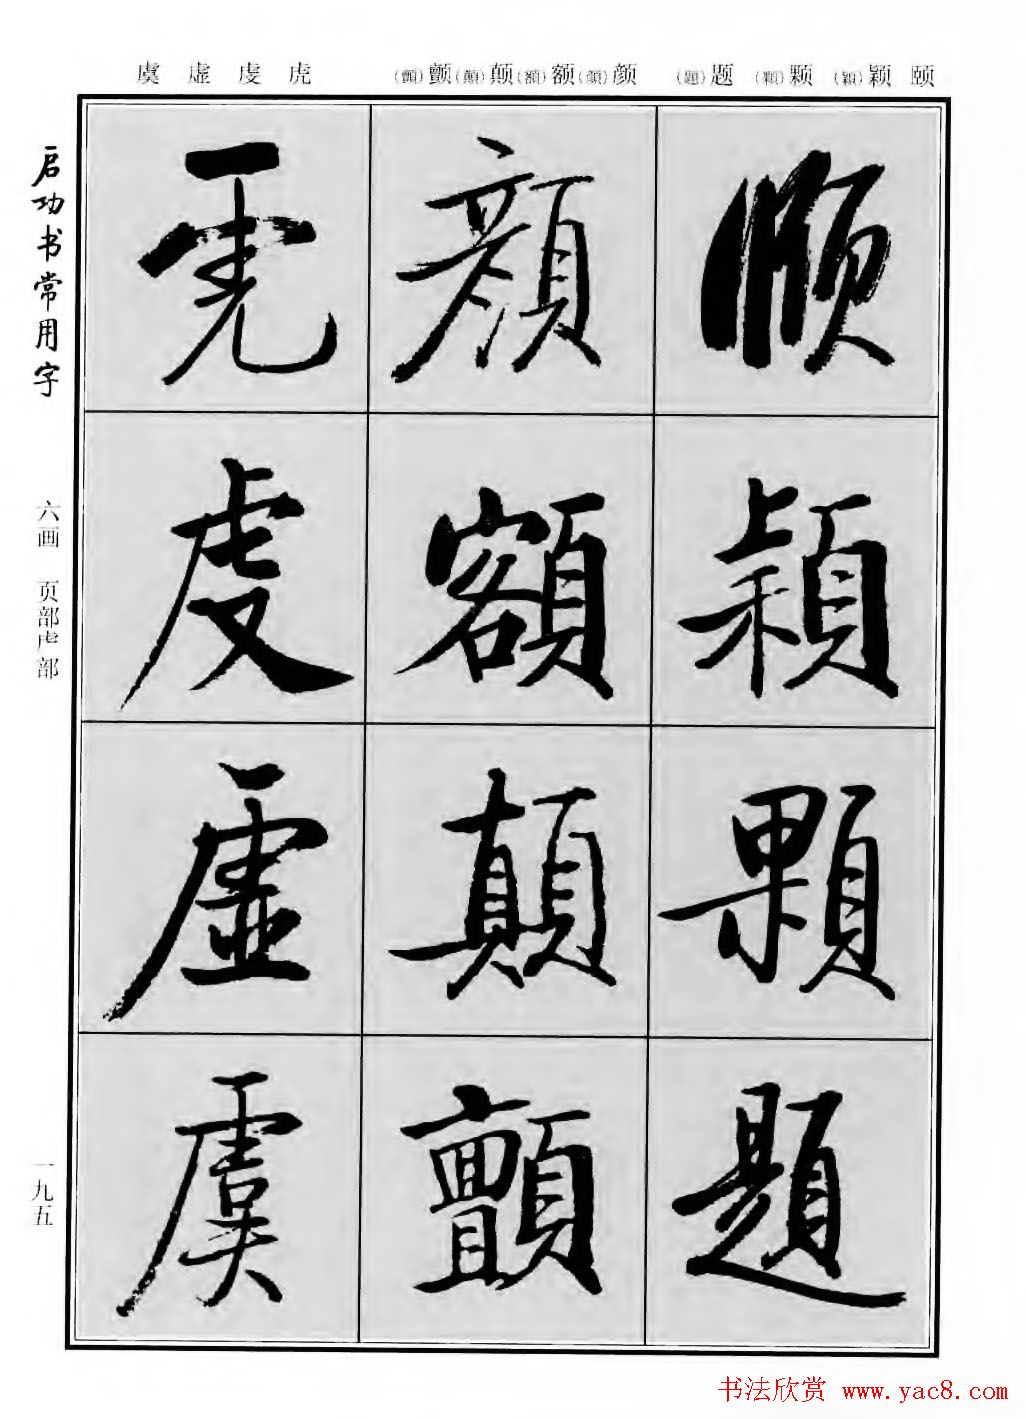 颐 颖(穎) 颗(顆) 题(題) 颜(顔)额(額)颠(顛)颤(顫) 虎 虔 虚 虞
頤穎顆題
顔額顛顫
虎虔虚虞
启功书常用字
六画 页部虍部
一九五
书法欣赏 www.yac8.com